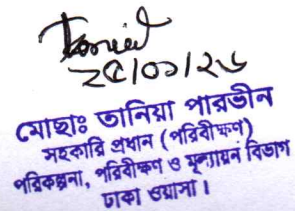 ২৫/০১/২৬
মোছাঃ তানিয়া পারভীন
সহকারি প্রধান (পরিবীক্ষণ)
পরিকল্পনা, পরিবীক্ষণ ও মূল্যায়ন বিভাগ
ঢাকা ওয়াসা।